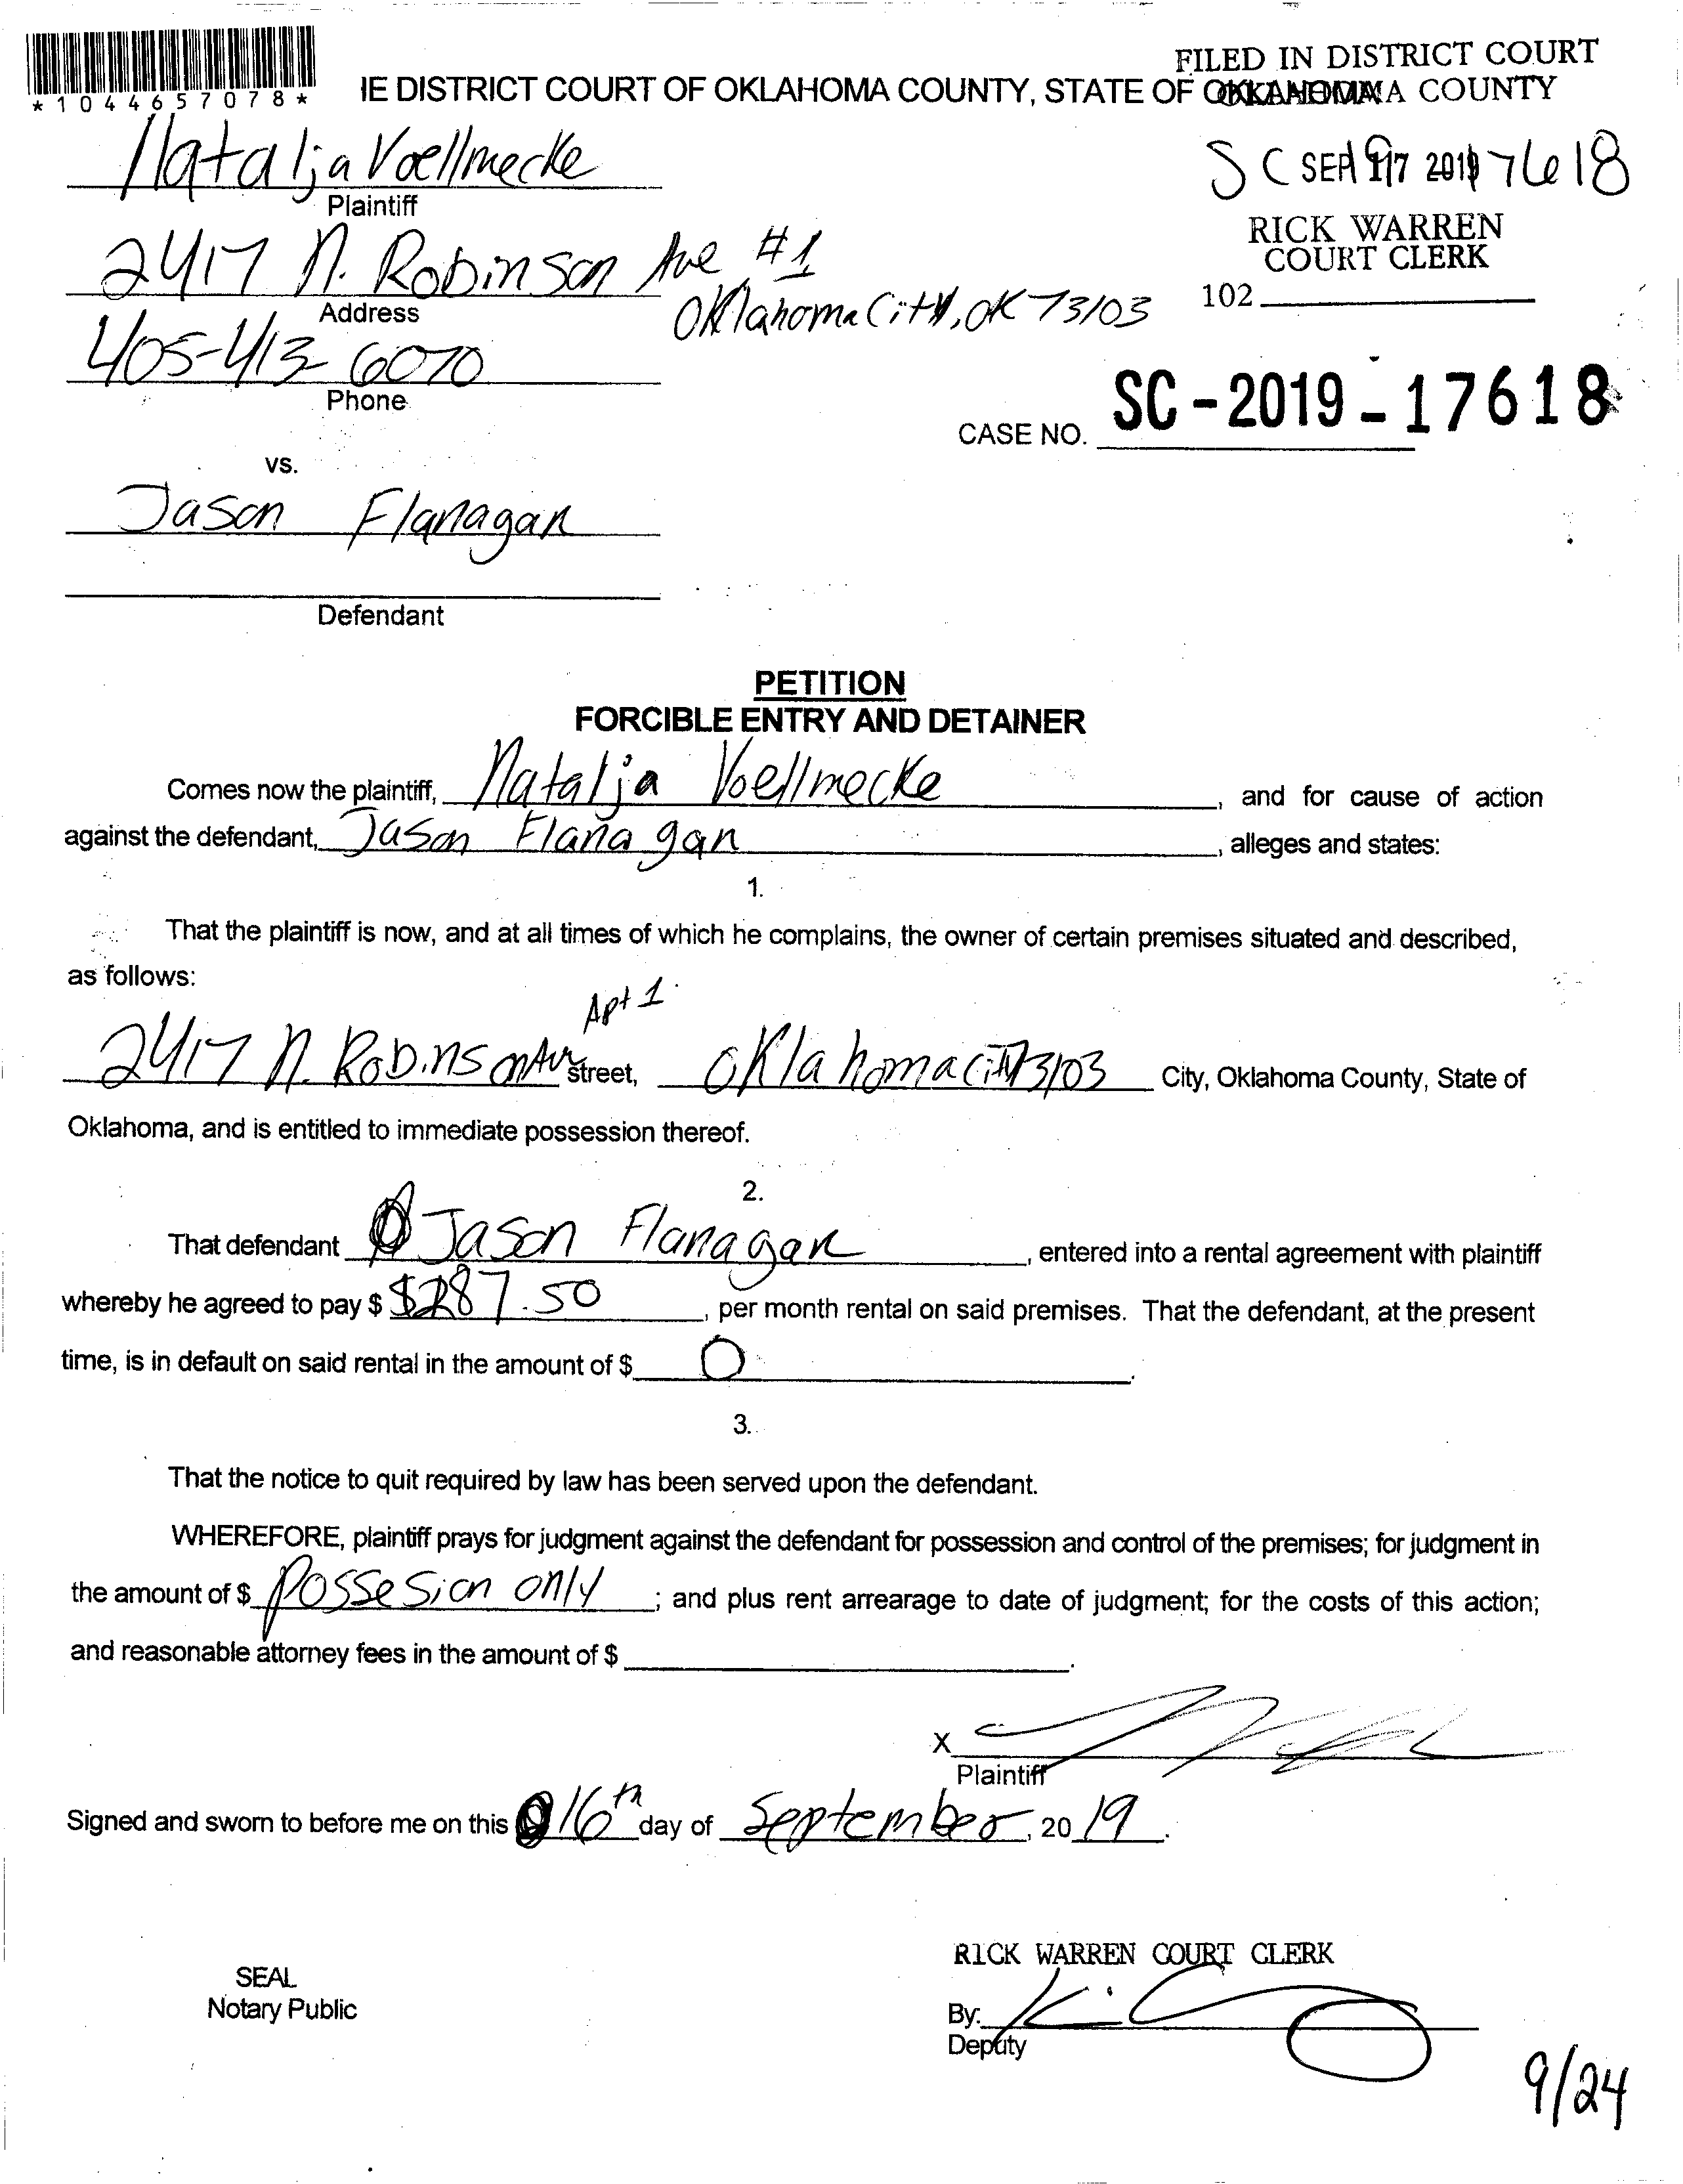 FILED IN DISTRICT COURT
IE DISTRICT COURT OF OKLAHOMA COUNTY, STATE OF OKLAHOMA COUNTY
*1044657078*
Natalja Voellmecke
Plaintiff
SEP 17 2019
SC 19 17618
RICK WARREN
COURT CLERK
2417 N. Robinson Ave #1
Address
Oklahoma City, OK 73103
102
405-413 6070
Phone
CASE NO. SC-2019-17618
vs.
Jason Flanagan
Defendant
PETITION
FORCIBLE ENTRY AND DETAINER
Comes now the plaintiff, Natalja Voellmecke, and for cause of action
against the defendant, Jason Flanagan, alleges and states:
1.
That the plaintiff is now, and at all times of which he complains, the owner of certain premises situated and described,
as follows:
Apt 1
2417 N. Robinson Ave street, Oklahoma City 73103 City, Oklahoma County, State of
Oklahoma, and is entitled to immediate possession thereof.
2.
That defendant Jason Flanagan, entered into a rental agreement with plaintiff
whereby he agreed to pay $ $287.50, per month rental on said premises. That the defendant, at the present
time, is in default on said rental in the amount of $ 0.
3.
That the notice to quit required by law has been served upon the defendant.
WHEREFORE, plaintiff prays for judgment against the defendant for possession and control of the premises; for judgment in
the amount of $ Possesion only; and plus rent arrearage to date of judgment; for the costs of this action;
and reasonable attorney fees in the amount of $.
X
Plaintiff
Signed and sworn to before me on this 16th day of September, 2019.
RICK WARREN COURT CLERK
SEAL
Notary Public
By:
Deputy
9/24